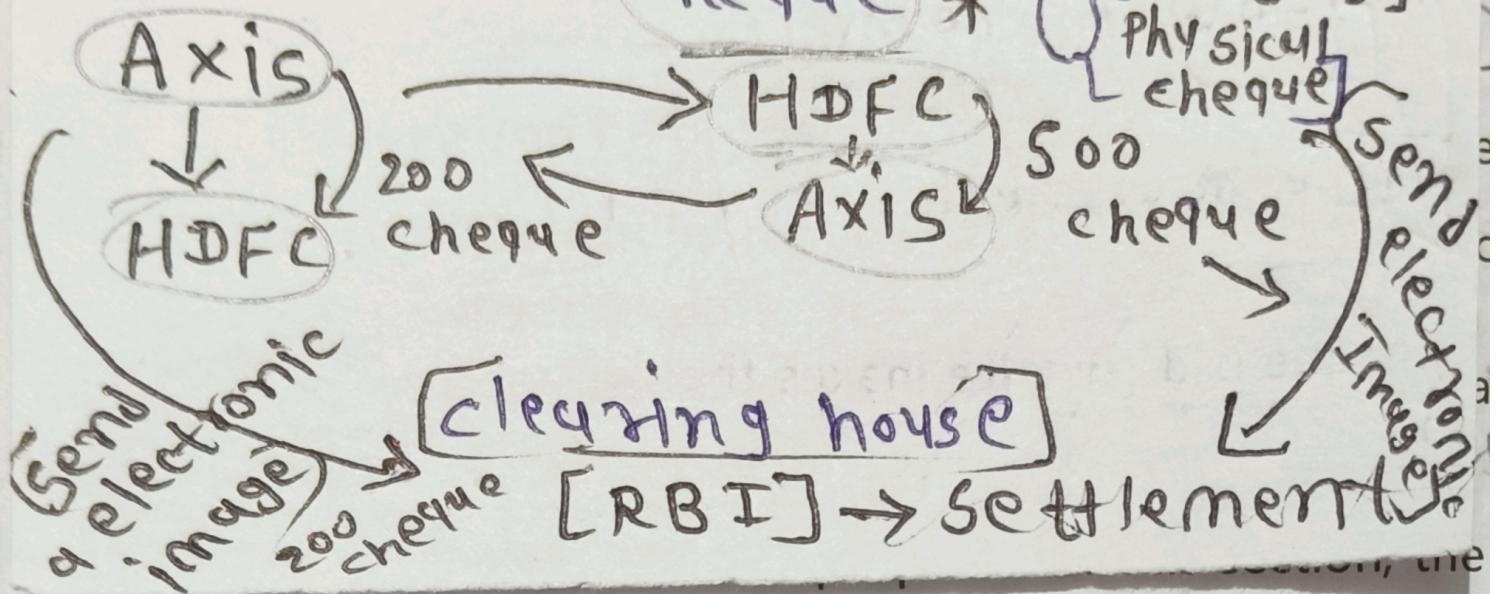 Axis
HDFC
200
cheque
HDFC
AXIS
500
cheque
Physical
cheque
(Send
electronic
Image)
(Send
a electronic
image)
200
cheque
[clearing house]
[RBI] → Settlement
the